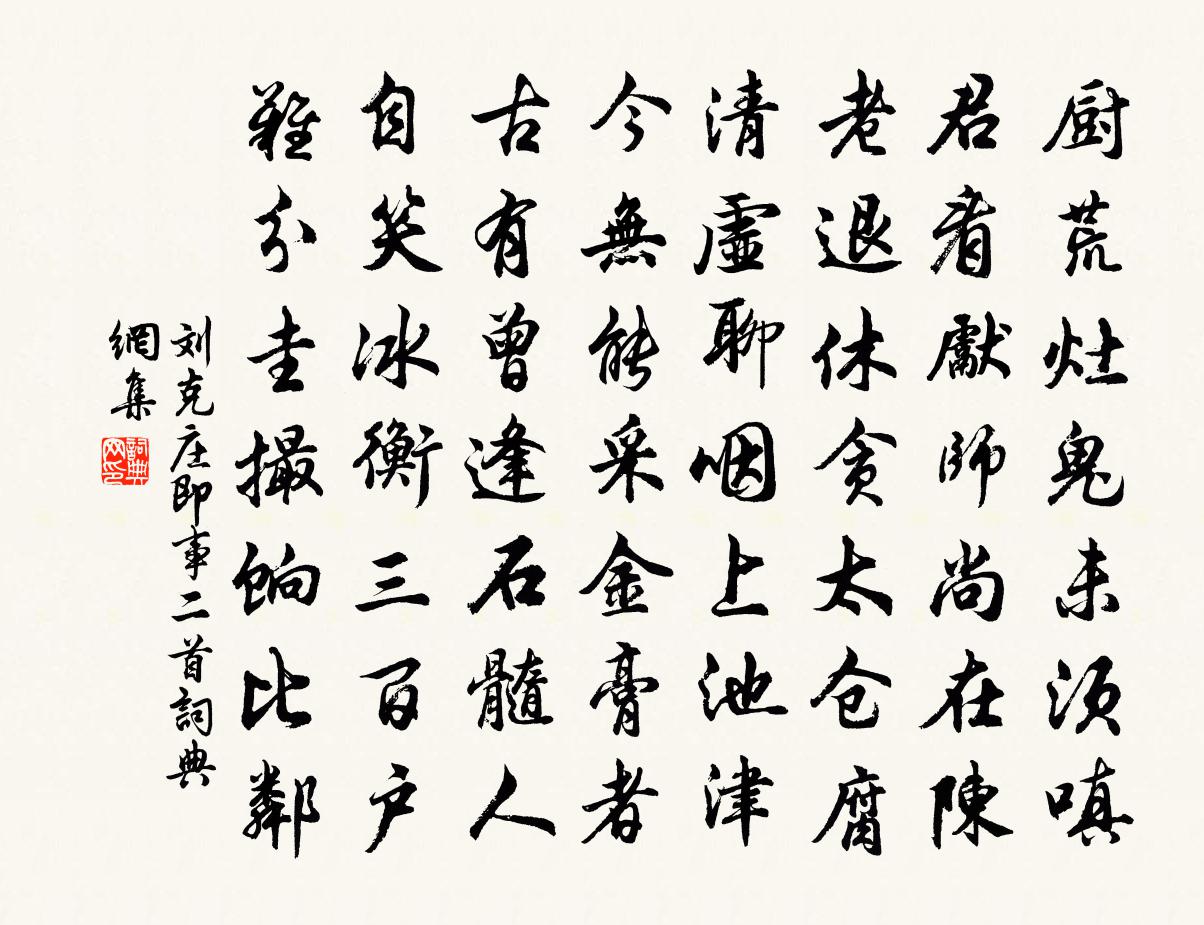 厨荒灶鬼未须嗔
君看獻師尚在陳
老退休贪太仓腐
清虛聊咽上池津
今無能采金膏者
古有曾逢石髓人
自笑冰衡三百户
難分圭撮餉比鄰
刘克庄即事二首詞典
網集
詞典
网印